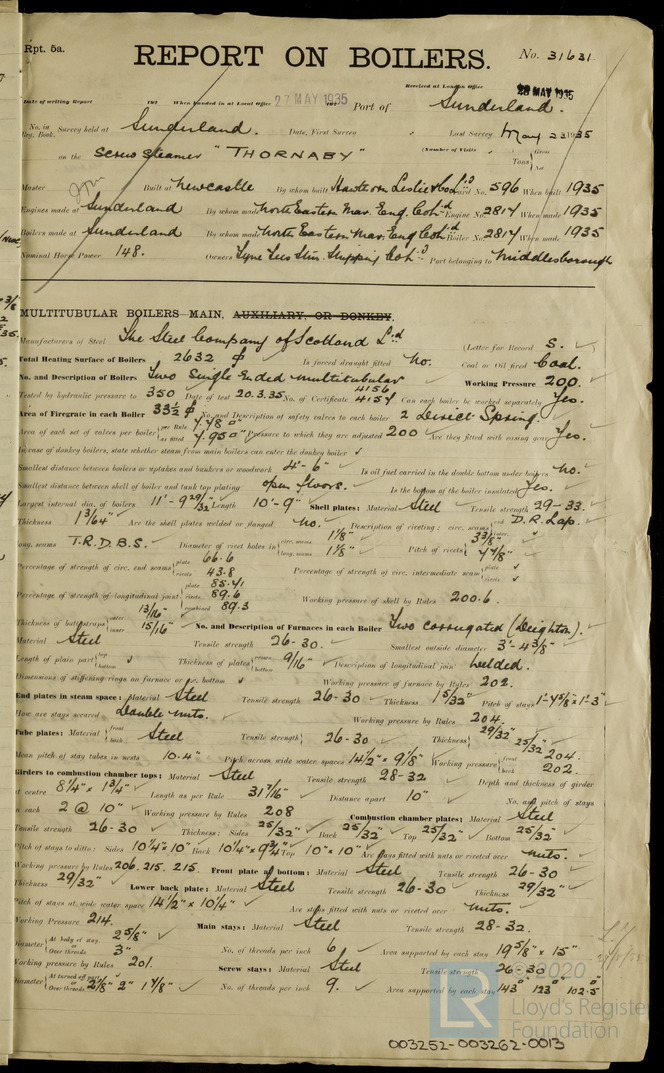 Rpt. 5a.
REPORT ON BOILERS.
No. 31631
Received at London Office 28 MAY 1935
Date of writing Report 192 When handed in at Local Office 27 MAY 1935 Port of Sunderland.
No. in Reg. Book. Survey held at Sunderland. Date, First Survey Last Survey May 23 1935
on the Screw Steamer "THORNABY" (Number of Visits Tons Gross Net
Master Built at Newcastle By whom built Hawthorn Leslie & Co Ltd Yard No. 596 When built 1935
Engines made at Sunderland By whom made North Eastern Mar. Eng. Co Ltd Engine No. 2817 When made 1935
Boilers made at Sunderland By whom made North Eastern Mar. Eng Co Ltd Boiler No. 2817 When made 1935
Nominal Horse Power 148. Owners Tyne Tees Stm. Shipping Co Ltd Port belonging to Middlesborough
MULTITUBULAR BOILERS—MAIN, AUXILIARY, OR DONKEY.
Manufacturers of Steel The Steel Company of Scotland Ltd (Letter for Record S. )
Total Heating Surface of Boilers 2632 ф Is forced draught fitted No. Coal or Oil fired Coal.
No. and Description of Boilers Two Single Ended multitubular Working Pressure 200.
Tested by hydraulic pressure to 350 Date of test 20.3.35 No. of Certificate 4156 4157 Can each boiler be worked separately Yes.
Area of Firegrate in each Boiler 33½ ф No. and Description of safety valves to each boiler 2 Direct Spring.
Area of each set of valves per boiler per Rule 4.48 □" as fitted 4.95 □" Pressure to which they are adjusted 200 Are they fitted with easing gear Yes.
In case of donkey boilers, state whether steam from main boilers can enter the donkey boiler
Smallest distance between boilers or uptakes and bunkers or woodwork 4'-6" Is oil fuel carried in the double bottom under boilers No.
Smallest distance between shell of boiler and tank top plating open floors. Is the bottom of the boiler insulated Yes.
Largest internal dia. of boilers 11'-9 29/32" Length 10'-9" Shell plates: Material Steel Tensile strength 29-33.
Thickness 1 3/64" Are the shell plates welded or flanged No. Description of riveting: circ. seams end D.R. Lap.
long. seams T.R.D.B.S. Diameter of rivet holes in circ. seams 1 1/8" long. seams 1 1/8" Pitch of rivets 3 3/8" 7 7/8"
Percentage of strength of circ. end seams plate 66.6 rivets 43.8 Percentage of strength of circ. intermediate seam plate rivets
Percentage of strength of longitudinal joint plate 85.71 rivets 89.6 combined 89.3 Working pressure of shell by Rules 200.6
Thickness of butt straps outer 13/16" inner 15/16" No. and Description of Furnaces in each Boiler Two corrugated (Deighton).
Material Steel Tensile strength 26-30 Smallest outside diameter 3'-4 3/8"
Length of plain part top bottom Thickness of plates crown bottom 9/16" Description of longitudinal joint Welded.
Dimensions of stiffening rings on furnace or c.c. bottom Working pressure of furnace by Rules 202.
End plates in steam space: Material Steel Tensile strength 26-30 Thickness 1 5/32" Pitch of stays 1'-7 5/8" × 1'-3"
How are stays secured Double nuts. Working pressure by Rules 204.
Tube plates: Material front back Steel Tensile strength 26-30 Thickness 29/32" 25/32"
Mean pitch of stay tubes in nests 10.4" Pitch across wide water spaces 14½" × 9 1/8" Working pressure front 204 back 202.
Girders to combustion chamber tops: Material Steel Tensile strength 28-32 Depth and thickness of girder
at centre 8¼" × 1¾" Length as per Rule 31 7/16" Distance apart 10" No. and pitch of stays
in each 2 @ 10" Working pressure by Rules 208 Combustion chamber plates: Material Steel
Tensile strength 26-30 Thickness: Sides 25/32" Back 25/32" Top 25/32" Bottom 25/32"
Pitch of stays to ditto: Sides 10¼" × 10" Back 10¼" × 9¾" Top 10" × 10" Are stays fitted with nuts or riveted over Nuts.
Working pressure by Rules 206. 215. 215. Front plate at bottom: Material Steel Tensile strength 26-30
Thickness 29/32" Lower back plate: Material Steel Tensile strength 26-30 Thickness 29/32"
Pitch of stays at wide water space 14½" × 10¼" Are stays fitted with nuts or riveted over Nuts.
Working Pressure 214. Main stays: Material Steel Tensile strength 28-32.
Diameter At body of stay, 2 5/8" or Over threads 3" No. of threads per inch 6 Area supported by each stay 19 5/8" × 15"
Working pressure by Rules 201. Screw stays: Material Steel Tensile strength 26-30
Diameter At turned off part, or Over threads 2 1/8" 2" 1 7/8" No. of threads per inch 9. Area supported by each stay 143□" 123□" 102.5□"
© 2020
LR Lloyd's Register
Foundation
003252-003262-0013